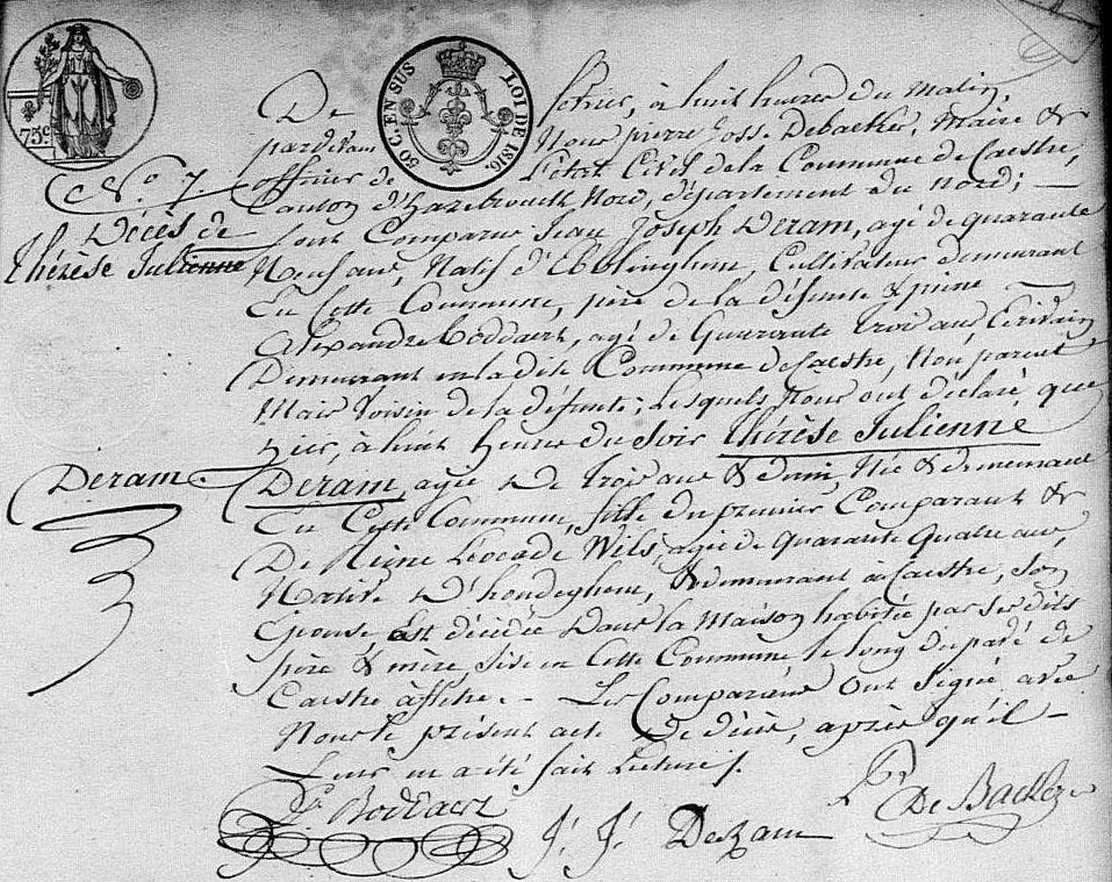 75c.
50 C. EN SUS
LOI DE 1816.
No 7.
Décès de
thérèse Julienne
Deram
De février, à huit heures du matin,
pardevant Nous pierre Josse Debaecker, Maire &
officier de L'état Civil de la Commune de Caestre,
Canton d'hazebrouck Nord, département du nord; —
sont Comparus Jean Joseph Deram, agé de quarante
Neuf ans, Natif d'Ebblinghem, Cultivateur demeurant
En Cette Commune, père de la défunte &
Alexandre Boddaert, agé de Quarante trois ans Ecrivain
Demeurant en la dite Commune de Caestre, Non parent
Mais Voisin de la défunte; Lesquels Nous ont déclaré que
hier, à huit heures du Soir thérèse Julienne
Deram, agée de trois ans & demi, Née & demeurant
En Cette Commune, fille du premier Comparant &
De Reine Léocade Wils, agée de Quarante Quatre ans,
Native D'hondeghem, & demeurant à Caestre, son
Epouse Est décédée Dans la Maison habitée par ses dits
père & mère, sise en Cette Commune, le long du pavé de
Caestre à fletre. - Les Comparans Ont Signé avec
Nous le présent acte De décès, après qu'il —
Leur en a été fait Lecture.
Boddaert
J. J. Deram
Pr De Backer